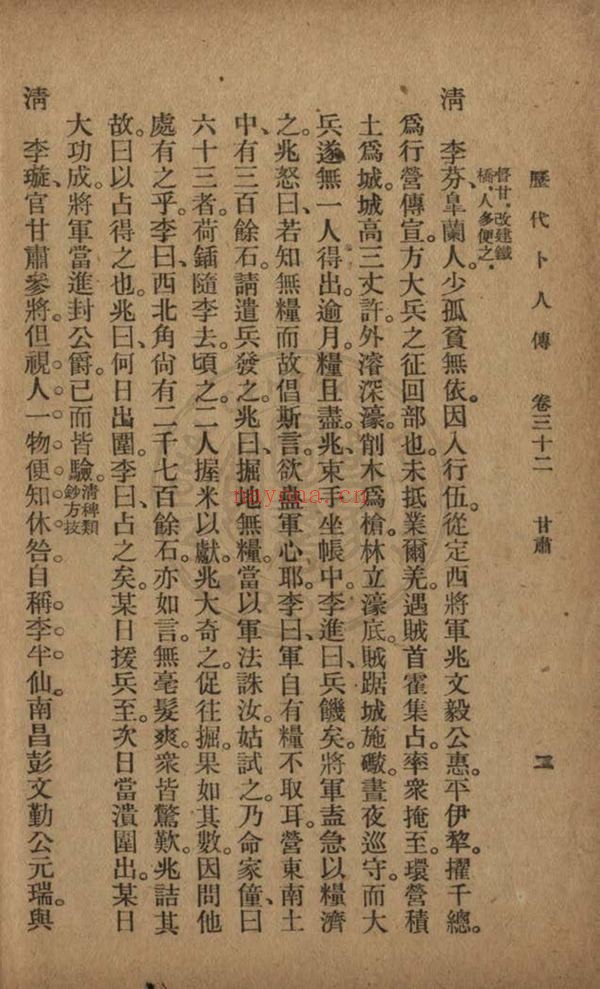 歷代卜人傳　卷三十二　甘肅　三
督甘。改建鐵
橋。人多便之。
清　李芬、皐蘭人。少孤貧無依。因入行伍。從定西將軍兆文毅公惠。平伊犂。擢千總。
爲行營傳宣。方大兵之征回部也。未抵業爾羌。遇賊首霍集占。率衆掩至。環營積
土爲城。城高三丈許。外濬深濠。削木爲槍。林立濠底。賊踞城施礮。晝夜巡守。而大
兵遂無一人得出。逾月。糧且盡。兆、束手坐帳中。李進曰、兵饑矣。將軍盍急以糧濟
之。兆怒曰、若知無糧而故倡斯言。欲蠱軍心耶。李曰、軍自有糧不取耳。營東南土
中、有三百餘石。請遣兵發之。兆曰、掘地無糧。當以軍法誅汝。姑試之。乃命家僮、曰
六十三者。荷鍤隨李去。頃之。二人握米以獻。兆大奇之。促往掘。果如其數。因問他
處有之乎。李曰、西北角尙有二千七百餘石。亦如言。無毫髮爽。衆皆驚歎。兆詰其
故。曰以占得之也。兆曰、何日出圍。李曰、占之矣。某日援兵至。次日當潰圍出。某日
大功成。將軍當進封公爵。已而皆驗。清稗類鈔方技
清　李璇、官甘肅參將。但視人一物。便知休咎。自稱李半仙。南昌彭文勤公元瑞。與